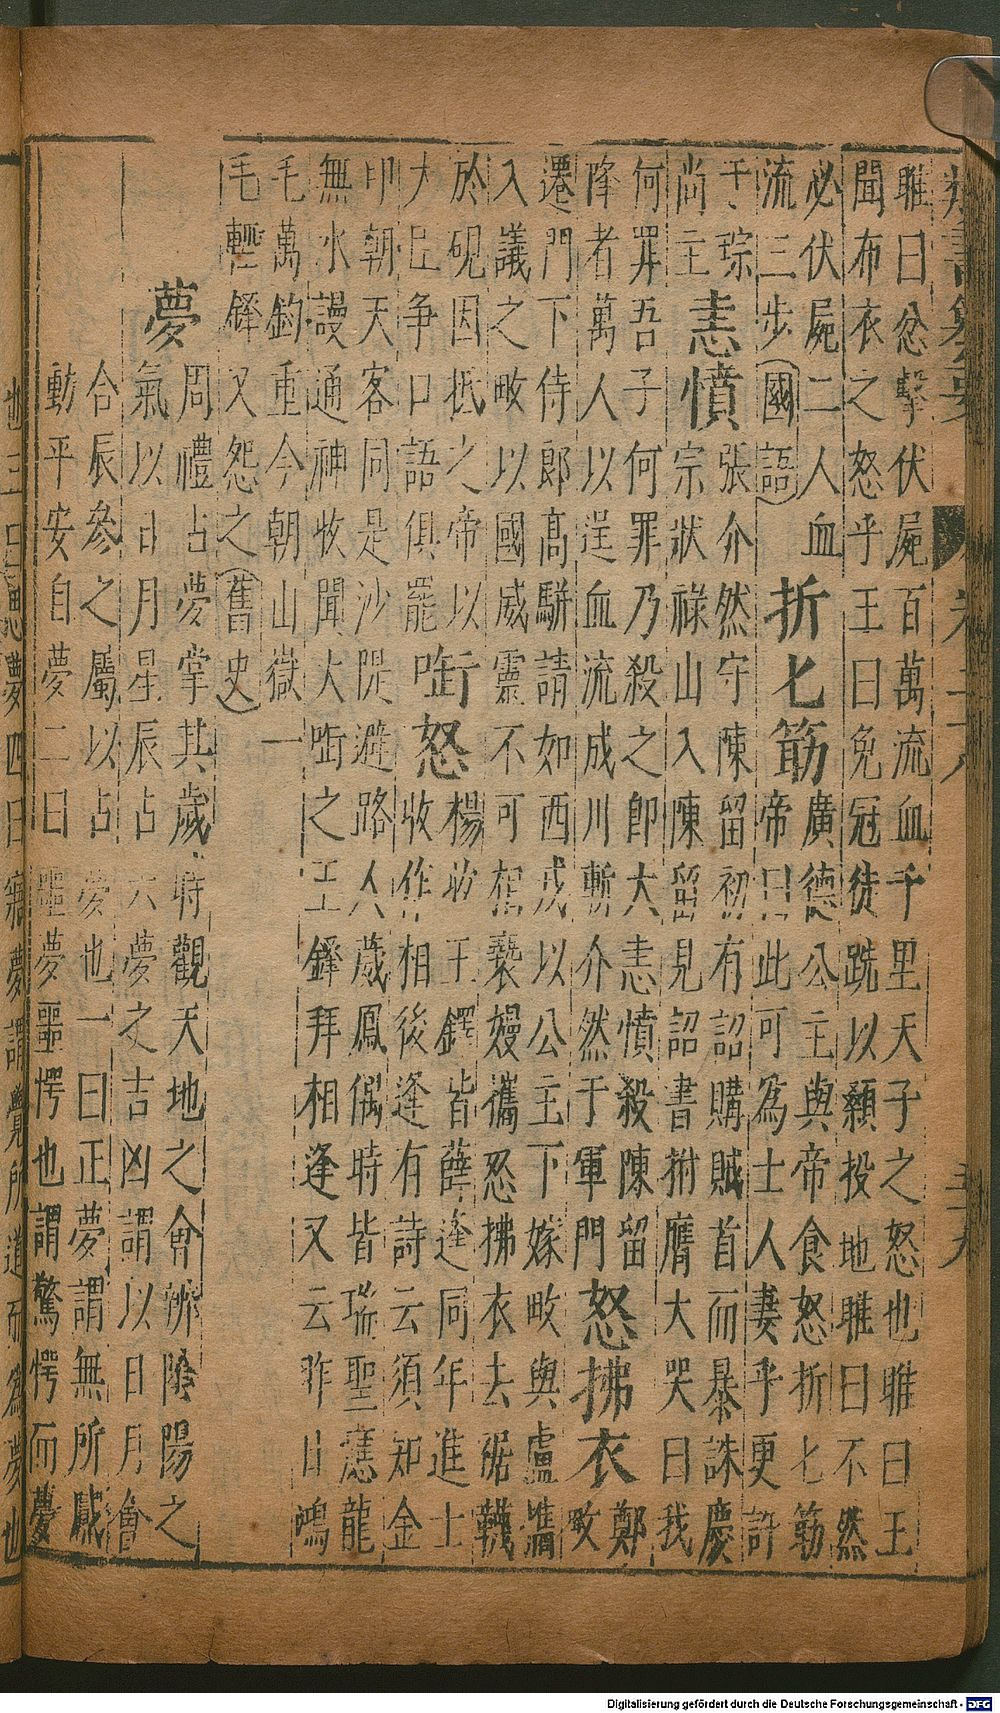 雎曰忿擊伏屍百萬流血千里天子之怒也雎曰王
聞布衣之怒乎王曰免冠徒跣以顙投地雎曰不然
必伏屍二人血
流三步國語
折匕筯
廣德公主與帝食怒折匕筯
帝曰此可爲士人妻乎更許
于琮
恚憤
張介然守陳留初有詔購賊首而暴誅慶
宗狀祿山入陳留見詔書拊膺大哭曰我
尚主
何罪吾子何罪乃殺之即大恚憤殺陳留
降者萬人以逞血流成川斬介然于軍門
怒拂衣
鄭
畋
遷門下侍郎高駢請如西戎以公主下嫁畋與盧攜
入議之畋以國威靈不可相褻嫚攜忿拂衣去裾韈
於硯因抵之帝以
大臣争口語俱罷
啣怒
楊收王鐸皆薛逢同年進士
收作相後逢有詩云須知金
印朝天客同是沙隄避路人葳鳳偶時皆瑞聖應龍
無水謾通神收聞大啣之王鐸拜相逢又云昨日鴻
毛萬鈞重今朝山嶽一
毛輕鐸又怨之舊史
夢
周禮占夢掌其歲時觀天地之會辨陰陽之
氣以日月星辰占六夢之吉凶謂以日月會
合辰參之屬以占夢也一曰正夢謂無所感
動平安自夢二曰噩夢噩愕也謂驚愕而夢
夢四曰寤夢謂覺所道而爲夢也
Digitalisierung gefördert durch die Deutsche Forschungsgemeinschaft - DFG